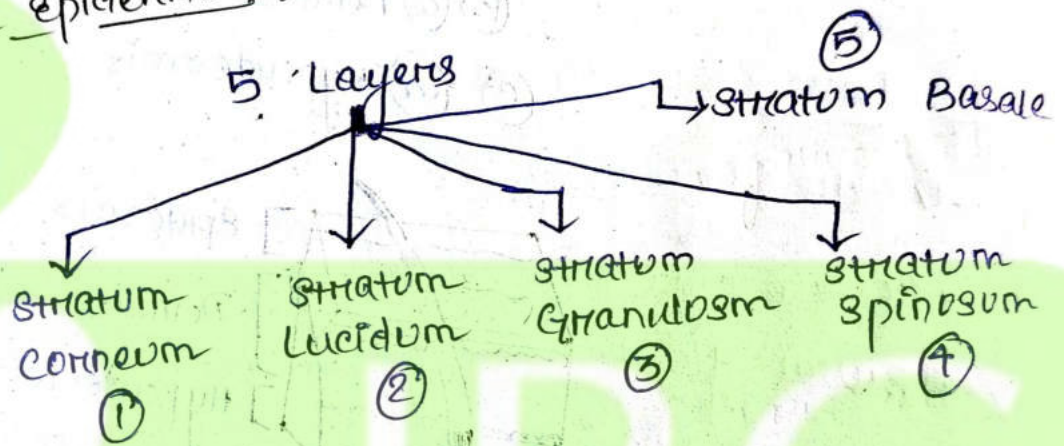 5 Layers
⑤
Stratum Basale
Stratum
Corneum
①
Stratum
Lucidum
②
Stratum
Granulosm
③
Stratum
Spinosum
④